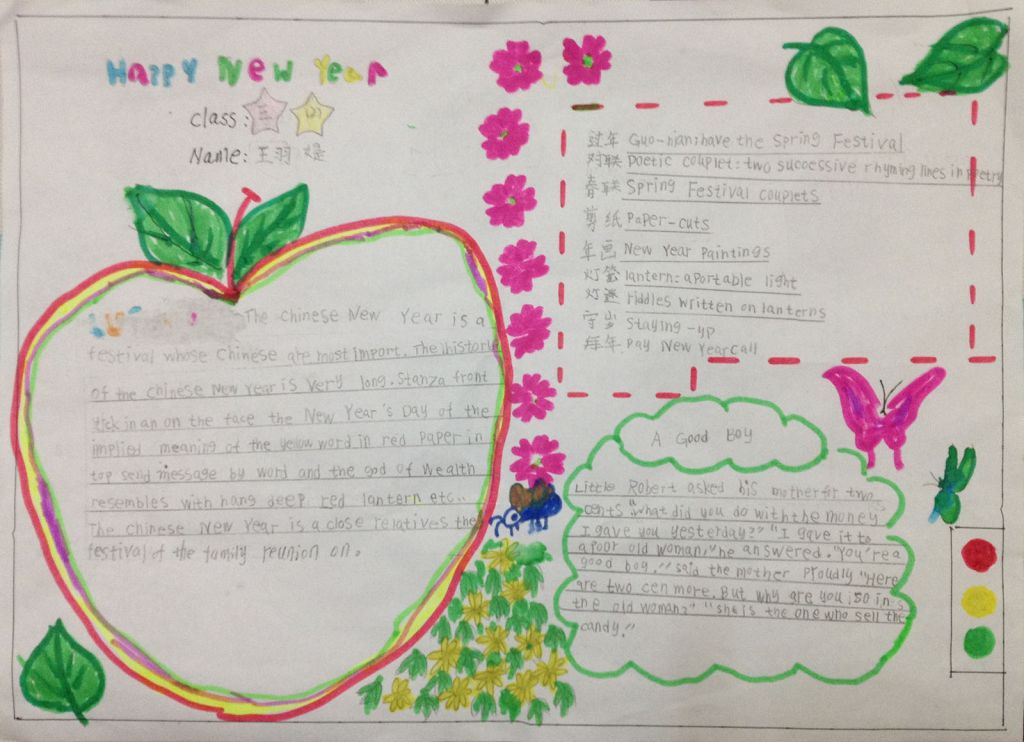 Happy New Year
class: 三 (2)
Name: 王羽
The Chinese New Year is a
festival whose Chinese are most import. The historic
of the chinese New Year is very long. Stanza front
stick in an on the face the New Year's Day of the
implied meaning of the yellow word in red paper in
top send message by word and the god of wealth
resembles with hang deep red lantern etc..
The chinese New Year is a close relatives the
festival of the family reunion on.
过年 Guo-nian: have the Spring Festival
对联 poetic couplet: two successive rhyming lines in poetry
春联 Spring Festival couplets
剪纸 Paper-cuts
年画 New Year Paintings
灯笼 lantern: a portable light
灯迷 riddles written on lanterns
守岁 Staying-up
拜年 Pay New Year Call
A Good Boy
Little Robert asked his mother for two
cents "what did you do with the money
I gave you yesterday?" "I gave it to
a poor old woman." he answered. "You're a
good boy," said the mother proudly "Here
are two cen more. But why are you iso in s
the old woman?" "she is the one who sell the
candy."